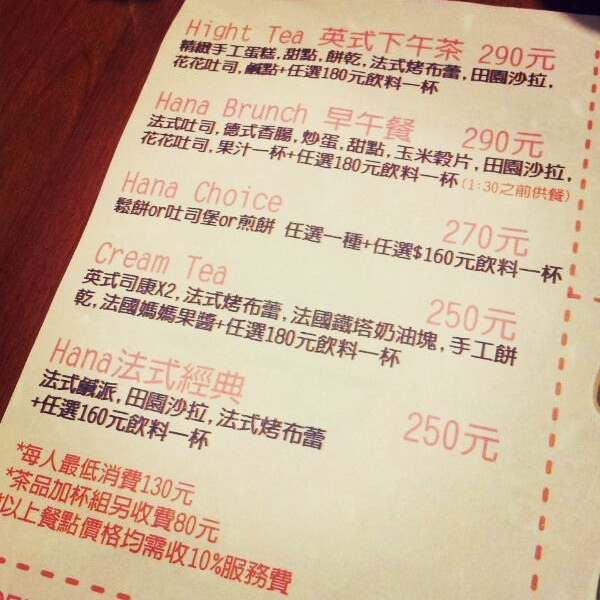 Hight Tea 英式下午茶 290元
精緻手工蛋糕,甜點,餅乾,法式烤布蕾,田園沙拉,
花花吐司,鹹點+任選180元飲料一杯
Hana Brunch 早午餐 290元
法式吐司,德式香腸,炒蛋,甜點,玉米穀片,田園沙拉,
花花吐司,果汁一杯+任選180元飲料一杯(1:30之前供餐)
Hana Choice 270元
鬆餅or吐司堡or煎餅 任選一種+任選$160元飲料一杯
Cream Tea 250元
英式司康X2,法式烤布蕾,法國鐵塔奶油塊,手工餅
乾,法國媽媽果醬+任選180元飲料一杯
Hana法式經典 250元
法式鹹派,田園沙拉,法式烤布蕾
+任選160元飲料一杯
*每人最低消費130元
*茶品加杯組另收費80元
*以上餐點價格均需收10%服務費